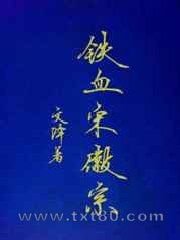 铁血宋徽宗
文 著
www.txt80.com